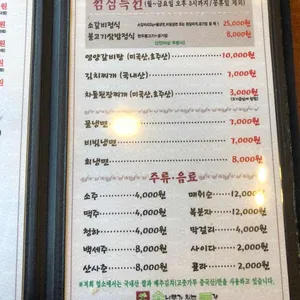 점심특선 (월~금요일 오후 3시까지/공휴일 제외)
소갈비정식 25,000원
불고기쌈밥정식 8,000원
영양갈비탕 (미국산,호주산) 10,000원
김치찌개 (국내산) 7,000원
차돌된장찌개 (미국산,호주산) 3,000원
물냉면 7,000원
비빔냉면 7,000원
회냉면 8,000원
주류·음료
소주 4,000원 매취순 12,000원
맥주 4,000원 복분자 12,000원
청하 4,000원 막걸리 4,000원
백세주 8,000원 사이다 2,000원
산사춘 8,000원 콜라 2,000원
※저희 업소에서는 국내산 쌀과 배추김치(고춧가루 중국산)만을 사용하고 있습니다.